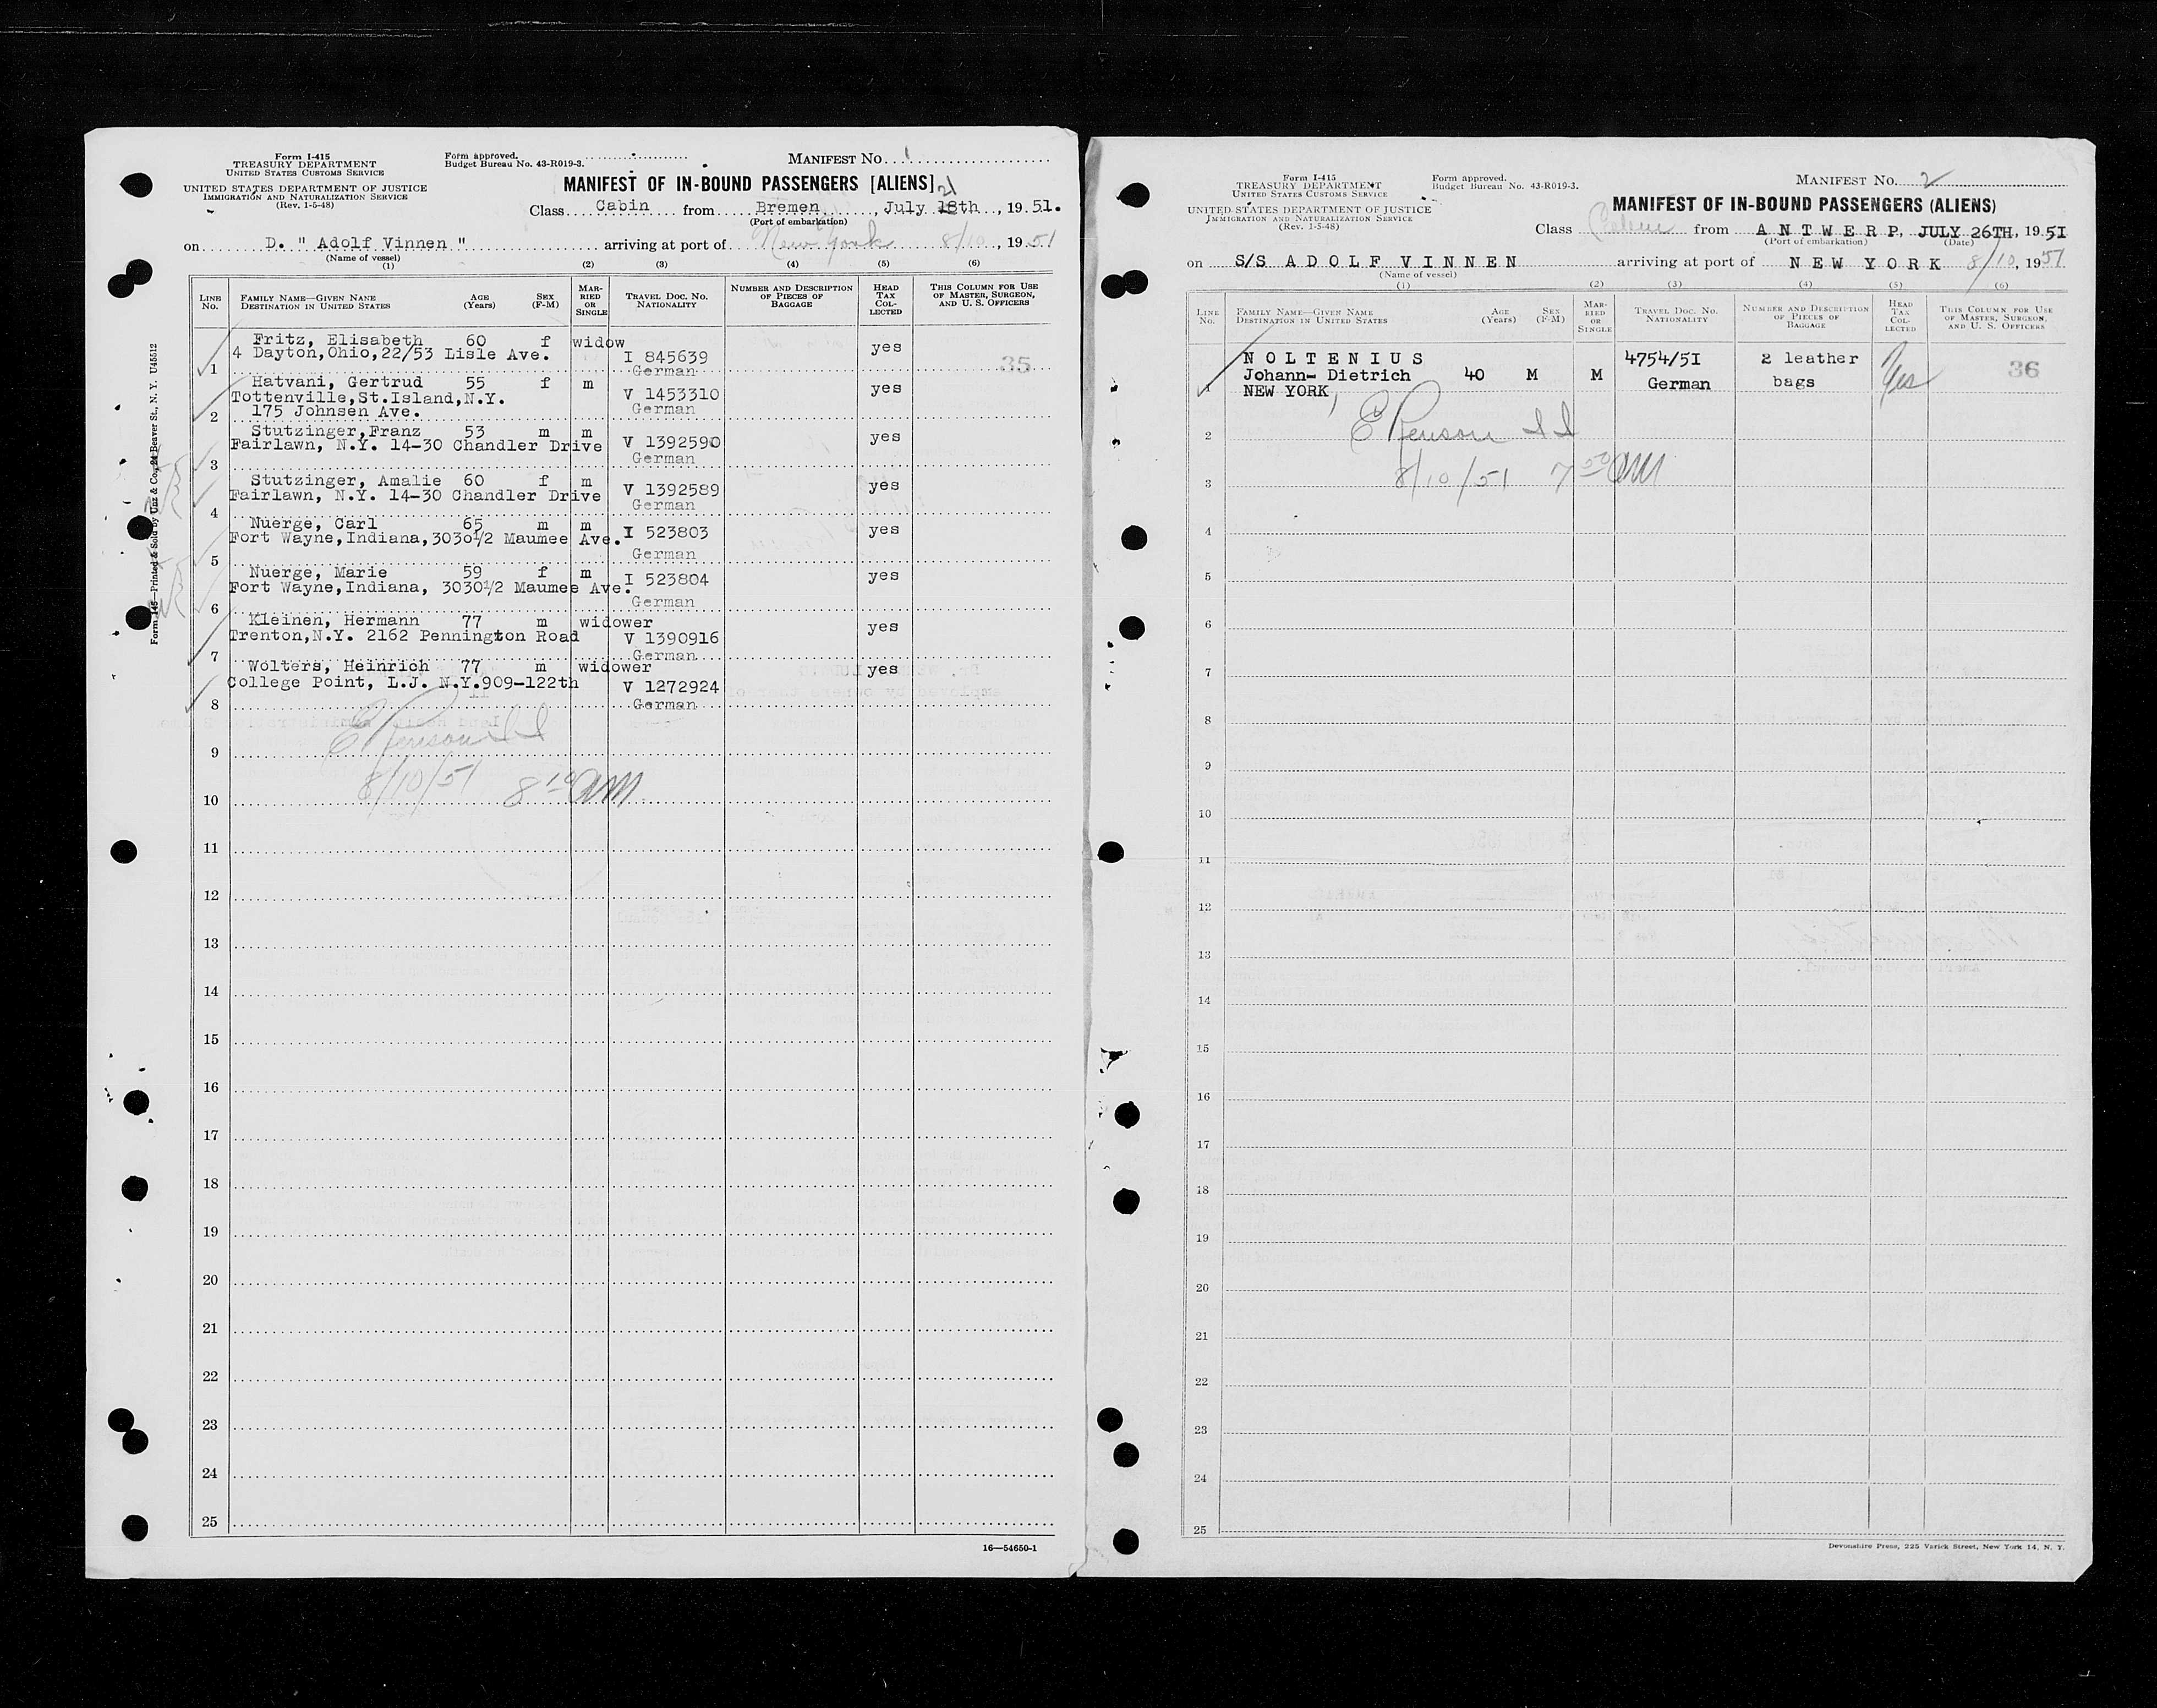 Form I-415
TREASURY DEPARTMENT
UNITED STATES CUSTOMS SERVICE
UNITED STATES DEPARTMENT OF JUSTICE
IMMIGRATION AND NATURALIZATION SERVICE
(Rev. 1-5-48)
Form approved.
Budget Bureau No. 43-R019-3.
MANIFEST No. 1
MANIFEST OF IN-BOUND PASSENGERS [ALIENS]
21
Class Cabin from Bremen, July 18th, 1951.
(Port of embarkation)
on D. " Adolf Vinnen " arriving at port of New York 8/10, 1951
(Name of vessel)
(1) (2) (3) (4) (5) (6)
LINE No. FAMILY NAME—GIVEN NANE DESTINATION IN UNITED STATES AGE (Years) SEX (F-M) MARRIED OR SINGLE TRAVEL DOC. NO. NATIONALITY NUMBER AND DESCRIPTION OF PIECES OF BAGGAGE HEAD TAX COLLECTED THIS COLUMN FOR USE OF MASTER, SURGEON, AND U. S. OFFICERS
Fritz, Elisabeth 60 f widow yes
4 Dayton,Ohio,22/53 Lisle Ave. I 845639 35
1 German
Hatvani, Gertrud 55 f m yes
Tottenville,St.Island,N.Y. V 1453310
2 175 Johnsen Ave. German
Stutzinger,Franz 53 m m yes
Fairlawn, N.Y. 14-30 Chandler Drive V 1392590
3 German
Stutzinger, Amalie 60 f m yes
Fairlawn, N.Y. 14-30 Chandler Drive V 1392589
4 German
Nuerge, Carl 65 m m yes
Fort Wayne,Indiana,3030½ Maumee Ave. I 523803
5 German
Nuerge, Marie 59 f m yes
Fort Wayne,Indiana, 3030½ Maumee Ave. I 523804
6 German
Kleinen, Hermann 77 m widower yes
Trenton,N.Y. 2162 Pennington Road V 1390916
7 German
Wolters, Heinrich 77 m widower yes
College Point, L.J. N.Y.909-122th V 1272924
8 German
9
8/10/51 8 10 AM
10
11
12
13
14
15
16
17
18
19
20
21
22
23
24
25
16—54650-1
Form I-415
TREASURY DEPARTMENT
UNITED STATES CUSTOMS SERVICE
UNITED STATES DEPARTMENT OF JUSTICE
IMMIGRATION AND NATURALIZATION SERVICE
(Rev. 1-5-48)
Form approved.
Budget Bureau No. 43-R019-3.
MANIFEST No. 2
MANIFEST OF IN-BOUND PASSENGERS (ALIENS)
Class Cabin from A N T W E R P, JULY 26TH, 1951
(Port of embarkation) (Date)
on S/S A D O L F V I N N E N arriving at port of N E W Y O R K 8/10, 1951
(Name of vessel)
(1) (2) (3) (4) (5) (6)
LINE No. FAMILY NAME—GIVEN NAME DESTINATION IN UNITED STATES AGE (Years) SEX (F-M) MARRIED OR SINGLE TRAVEL DOC. NO. NATIONALITY NUMBER AND DESCRIPTION OF PIECES OF BAGGAGE HEAD TAX COLLECTED THIS COLUMN FOR USE OF MASTER, SURGEON, AND U. S. OFFICERS
N O L T E N I U S 4754/51 2 leather
Johann- Dietrich 40 M M German bags Yes 36
1 NEW YORK
2
3 8/10/51 7 50 AM
4
5
6
7
8
9
10
11
12
13
14
15
16
17
18
19
20
21
22
23
24
25
Devonshire Press, 225 Varick Street, New York 14, N. Y.